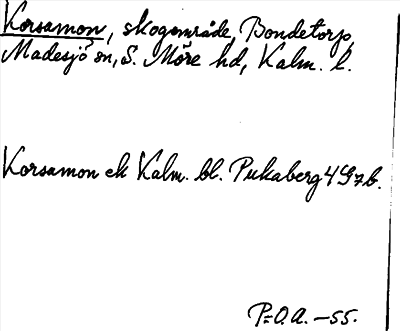 Korsamon, skogområde, Bondetorp,
Madesjö sn, S. Möre hd, Kalm. l.
Korsamon ek Kalm. bl. Pukaberg 4G7b.
P=O.A. -55.